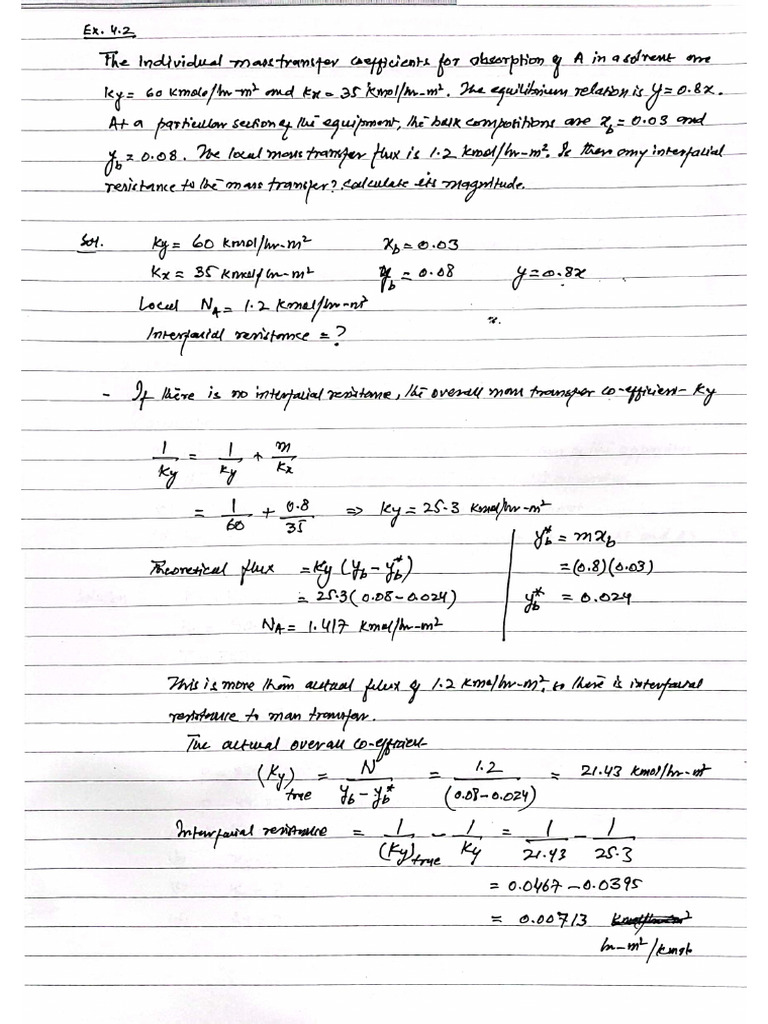 Ex. 4.2
The Individual mass transfer coefficients for absorption of A in a solvent are
ky = 60 kmole/hr-m² and kx = 35 kmol/hr-m². The equilibrium relation is y = 0.8x.
At a particular section of the equipment, the bulk compositions are x_b = 0.03 and
y_b = 0.08. The local mass transfer flux is 1.2 kmol/hr-m². Is there any interfacial
resistance to the mass transfer? calculate its magnitude.
Sol. ky = 60 kmol/hr-m² x_b = 0.03
kx = 35 kmol/hr-m² y_b = 0.08 y = 0.8x
Local N_A = 1.2 kmol/hr-m²
Interfacial resistance = ?
- If there is no interfacial resistance, the overall mass transfer co-efficient Ky
1/Ky = 1/ky + m/kx
= 1/60 + 0.8/35 ⇒ Ky = 25.3 kmol/hr-m²
y_b* = m x_b
Theoretical flux = Ky (y_b - y_b*) = (0.8)(0.03)
= 25.3 (0.08 - 0.024) y_b* = 0.024
N_A = 1.417 kmol/hr-m²
This is more than actual flux of 1.2 kmol/hr-m², so there is interfacial
resistance to mass transfer.
The actual overall co-efficient
(Ky)true = N/(y_b - y_b*) = 1.2/(0.08-0.024) = 21.43 kmol/hr-m²
Interfacial resistance = 1/(Ky)true - 1/Ky = 1/21.43 - 1/25.3
= 0.0467 - 0.0395
= 0.00713
hr-m²/kmol